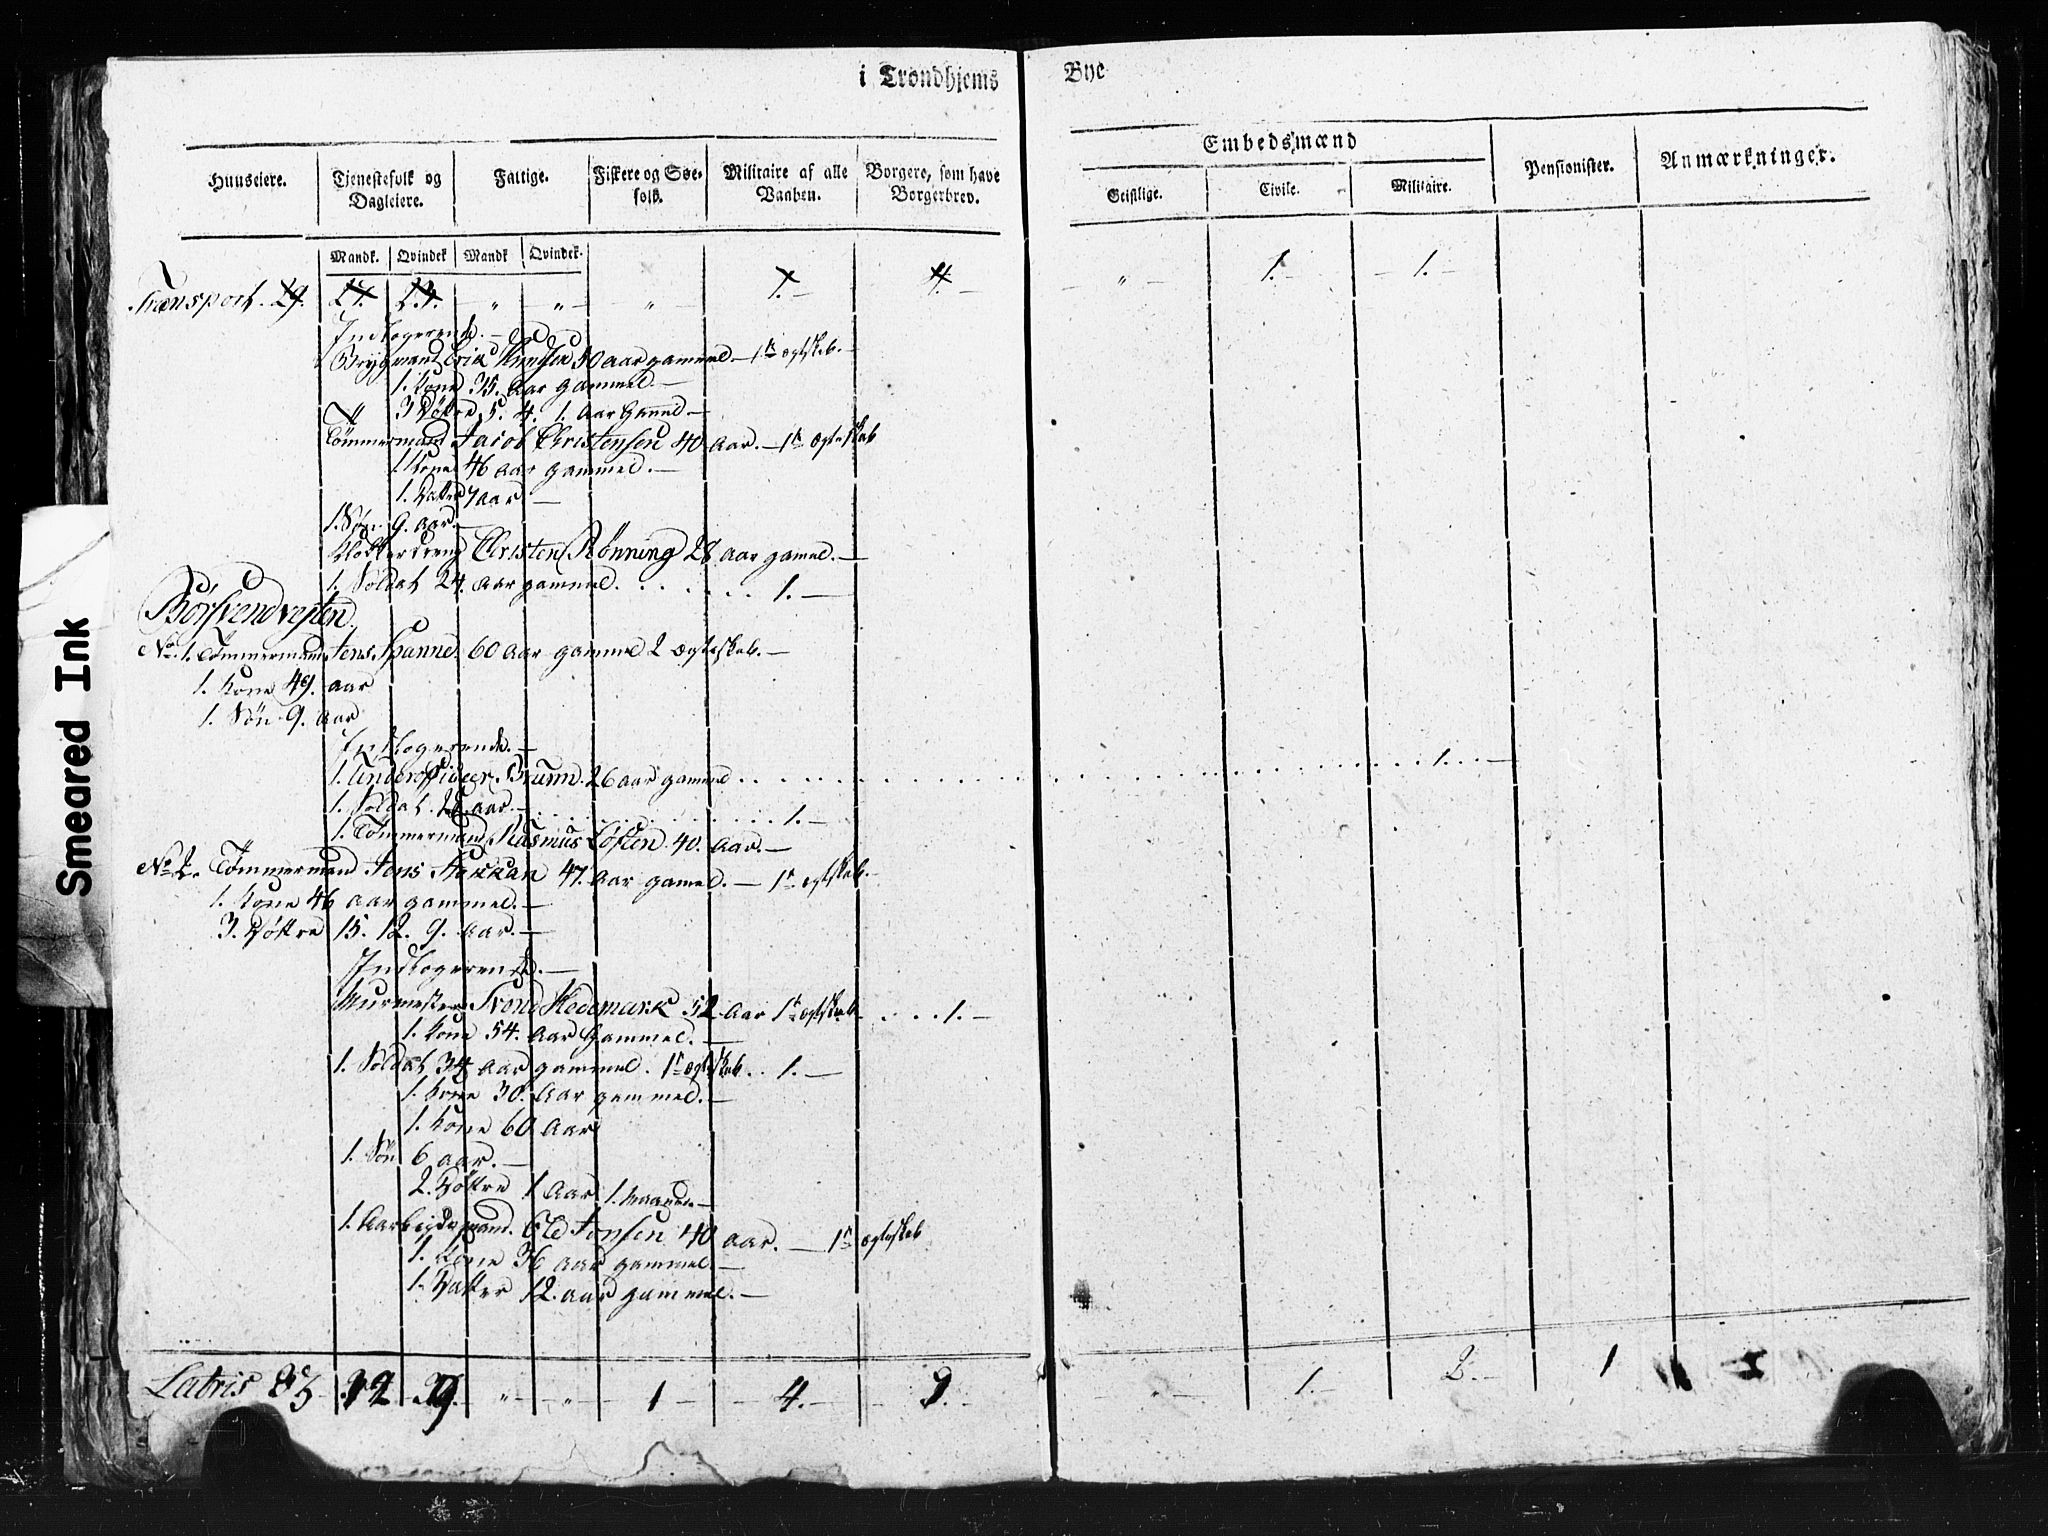 i Trondhjems Bye
Huuseiere. Tjenestefolk og Dagleiere. Fattige. Fiskere og Søefolk. Militaire af alle Vaaben. Borgere, som have Borgerbrev. Embedsmænd Pensionister. Anmærkninger.
Geistlige. Civile. Militaire.
Mandk. Qvindek Mandk Qvindek.
Transport. 29. 1. 4. 1. 1.
Indlogerende.
Brygmand Erik Knudsen 50 aar gammel 1te ægtskab.
1. Kone 35. aar gammel.
3 Døttre 5. 4. 1. aar Gamel
Tömmermand Jacob Christensen 40 aar. 1te ægteskab
1. Kone 46 aar gammel.
1. Datter 7 aar
1. Sön 9. aar.
Christen Rönning 28 aar gamel.
1. Soldat 24. aar gammel. . . . . . . 1.
Börsvendvesten
No. 1. Tömmermand Jens Spanne. 60 aar gammel 2 ægteskab.
1. Kone 49. aar
1. Sön 9. aar
Indlogerende.
1. Underofficeer Brunn. 26 aar gammel . . . . . . . . . 1.
1. Soldat. aar. . . . . . . . 1.
1. Tömmermand Rasmus Löften 40. aar.
No. 2. Tömmermand Jens Stokkan 47. aar gamel. 1te ægtskab.
1. Kone 46 aar gammel.
3. Döttre 15. 12. 9. aar.
Indlogerende.
Murmester Trond Hedemark 52 aar 1te ægtskab . . . 1.
1. Kone 54. aar Gammel.
1. Soldat 34 aar gammel. 1te ægteskab. . 1.
1. Kone 30. aar gammel.
1. Kone 60 aar
1. Sön 6 aar.
2. Döttre 1 aar 1. maaned
1. Arbeidsmand. Ole Jonsen 40 aar. 1te ægteskab
1. Kone 36 aar gammel
1. Datter 12. aar gammel.
Latris 1 4. 9. 1. 2. 1
Smeared Ink